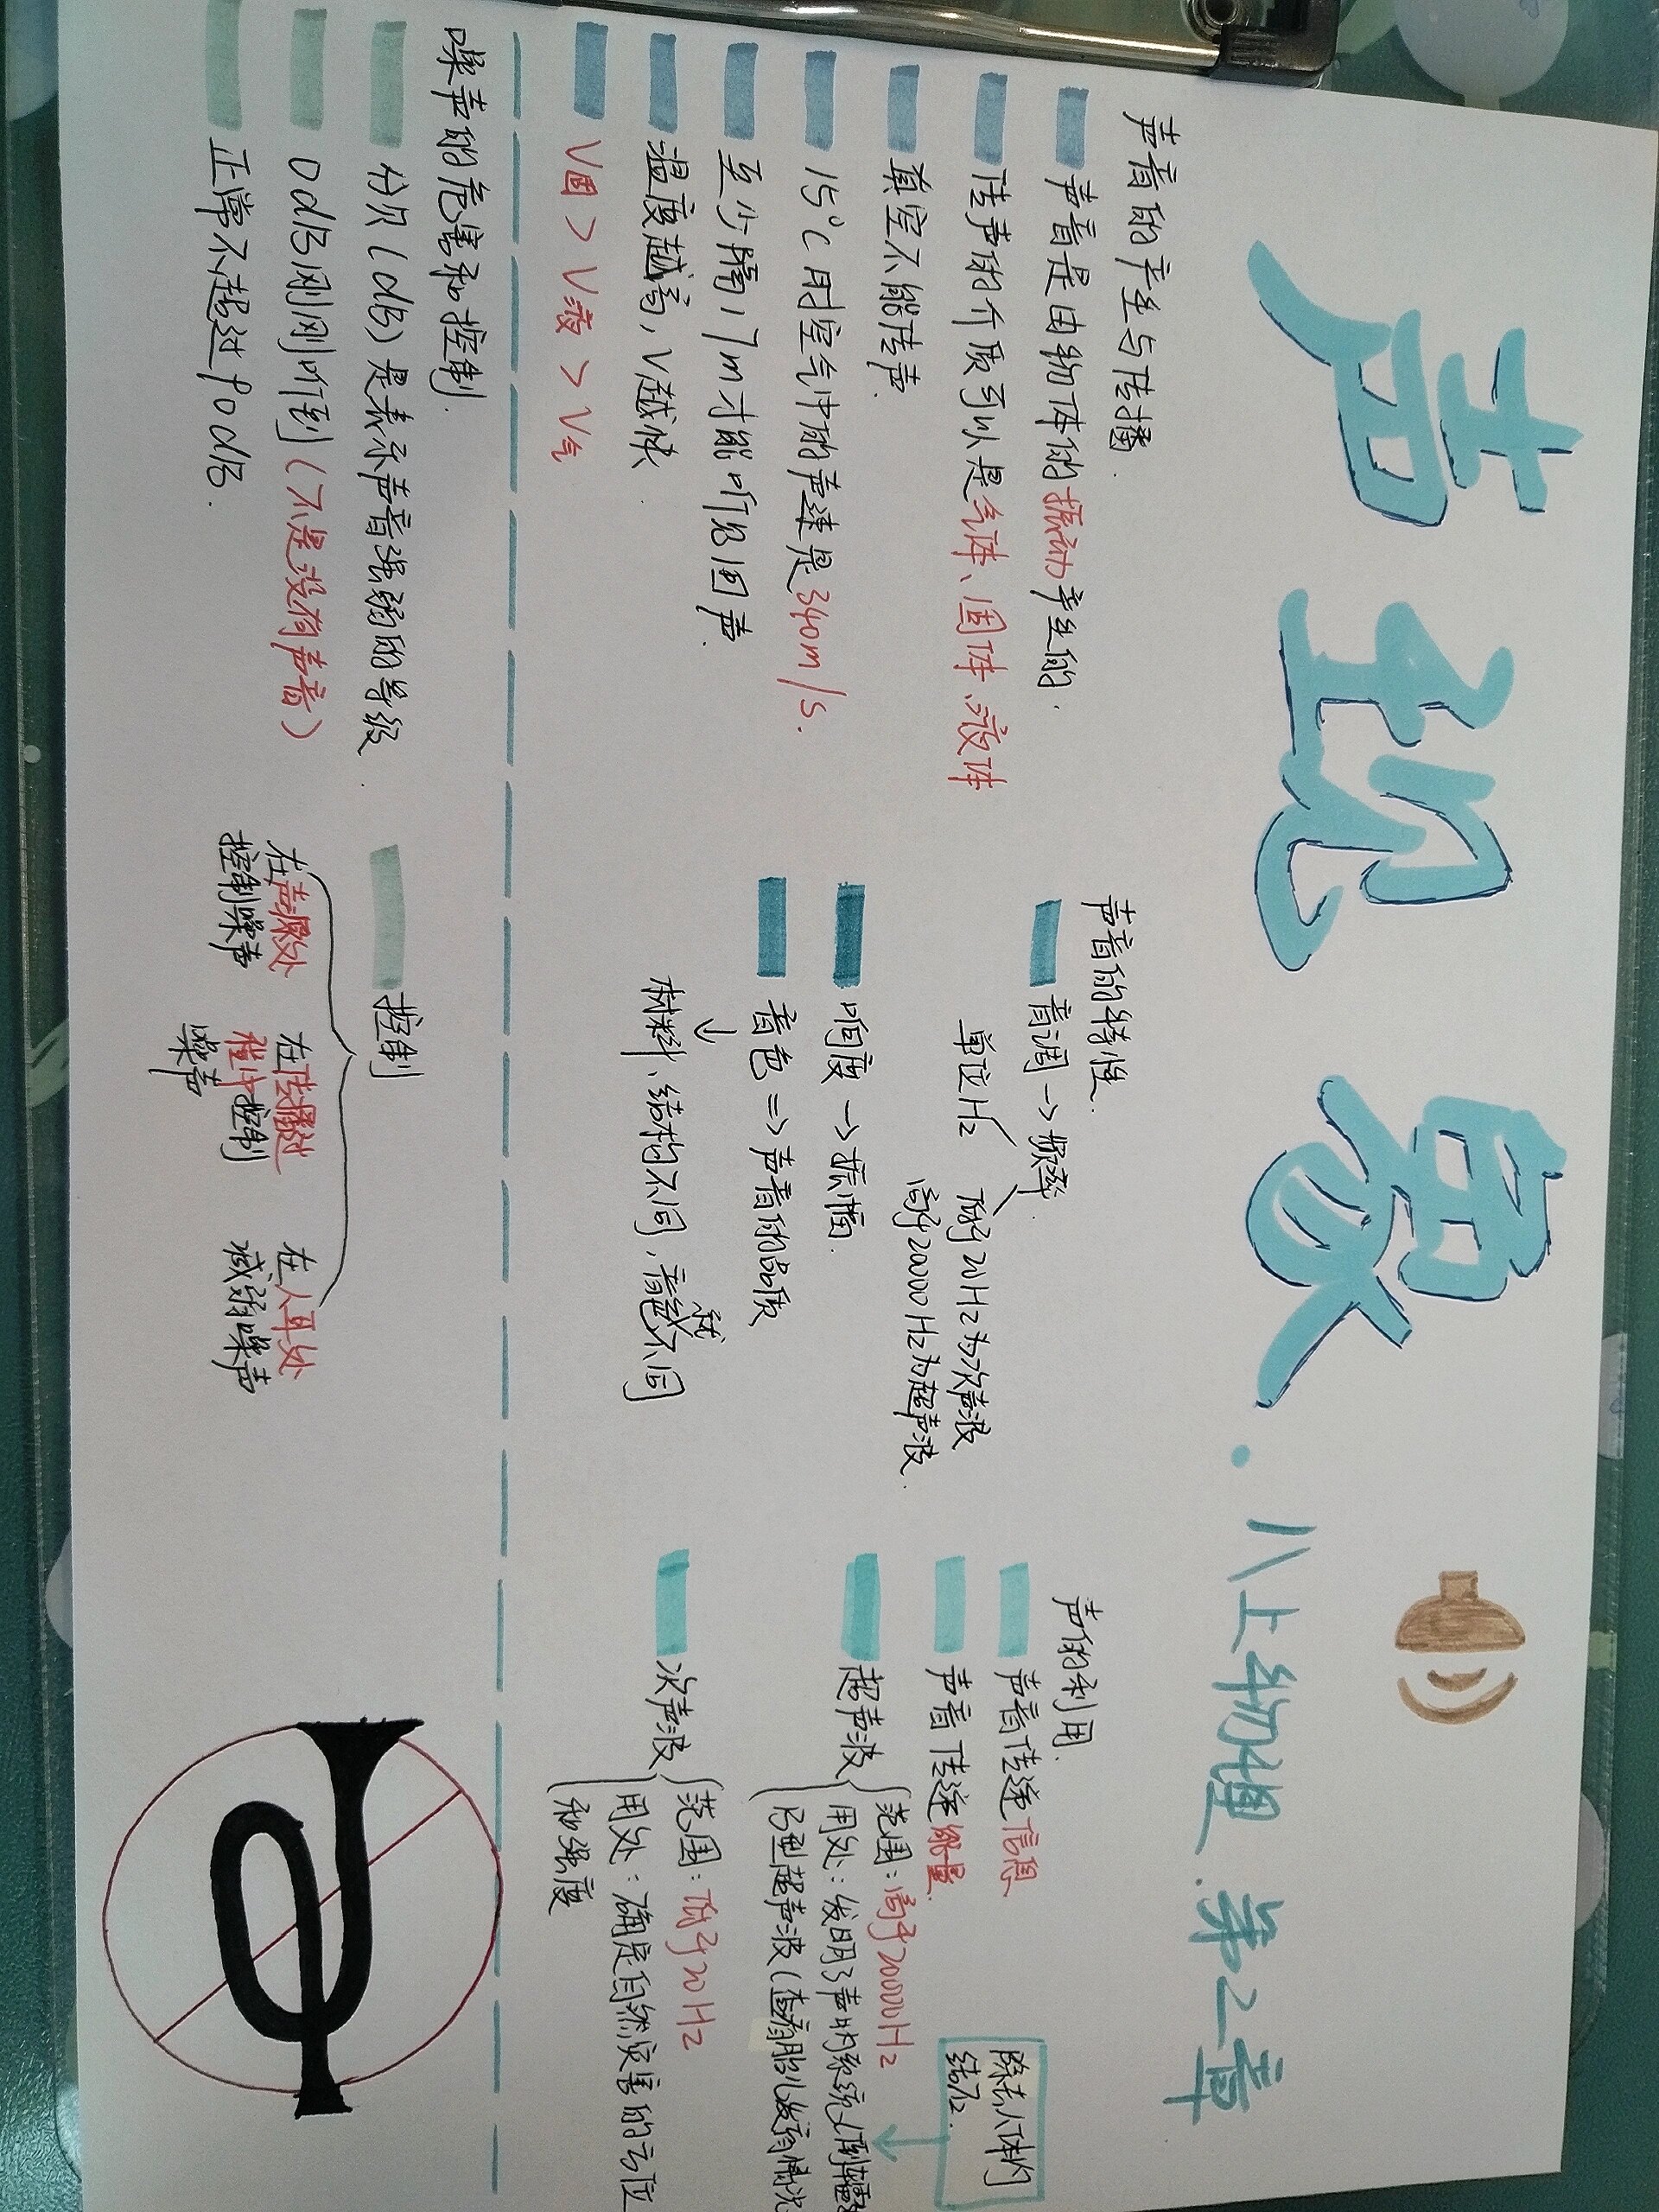 声现象·八上物理.第2章
声音的产生与传播.
声音是由物体的振动产生的.
传声的介质可以是气体、固体、液体
真空不能传声.
15°C时空气中的声速是340m/s.
至少隔17m才能听见回声.
温度越高,V越快.
V固>V液>V气
声音的特性.
音调→频率.
单位Hz
低于20Hz为次声波
高于20000Hz为超声波.
响度→振幅.
音色=>声音的品质
↓
材料、结构不同,音色就不同
声的利用.
声音传递信息
声音传递能量
超声波
范围:高于20000Hz
用处:发明了声呐系统、倒车雷达
B型超声波(查看胎儿发育情况
除去人体内
结石.
次声波
范围:低于20Hz
用处:确定自然灾害的方位
和强度
噪声的危害和控制.
分贝(dB)是表示声音强弱的等级.
0dB刚刚听到(不是没有声音)
正常不超过90dB.
控制
在声源处
控制噪声
在传播过
程中控制
噪声
在人耳处
减弱噪声